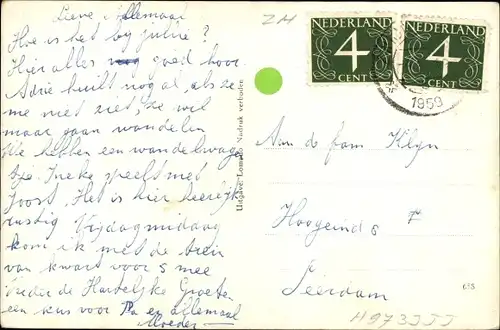 Lieve Allemaal
Hoe is het by jullie?
Hier alles nog goed hoor.
Adrie huilt nog al, als ze
me niet ziet, ze wil
maar gaan wandelen
We hebben een wandelwage
tje. Ineke speelt met
Joost. Het is hier heerlijk
rustig Vrijdagmiddag
kom ik met de trein
van kwart voor 5 mee
Verder de Hartelijke Groeten
een kus voor Pa en allemaal
Moeder
ZH
NEDERLAND
4
CENT
NEDERLAND
4
CENT
1959
Uitgave: Nadruk verboden
Aan de fam Klyn
Hoogeind 8
Leerdam
H973JJJ